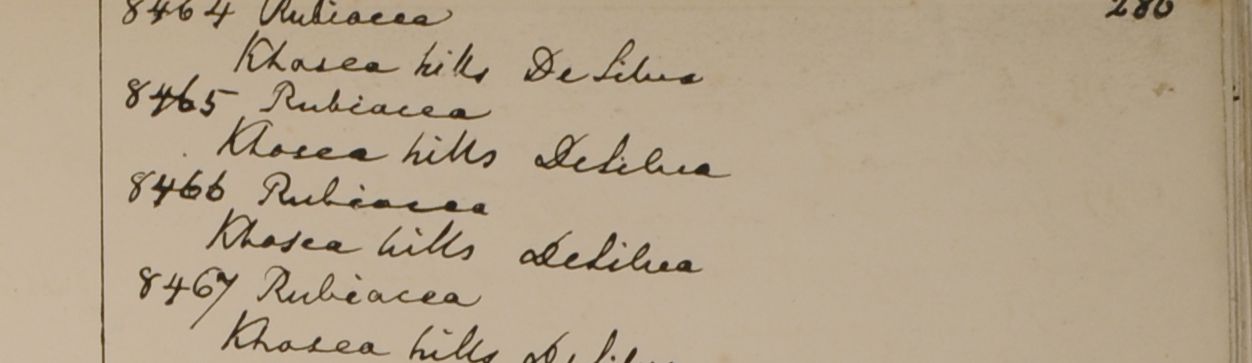 8464 Rubiacea 280
Khasea hills De Silva
8465 Rubiacea
Khasea hills DeSilva
8466 Rubiacea
Khasea hills DeSilva
8467 Rubiacea
Khasea hills DeSilva